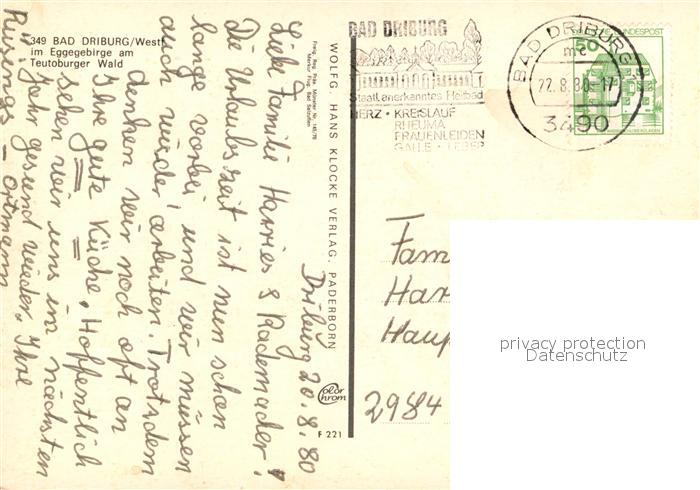 349 BAD DRIBURG/Westf.
im Eggegebirge am
Teutoburger Wald
Driburg 20.8.80
Liebe Familie Harries & Rademacher!
Die Urlaubszeit ist nun schon
lange vorbei und wir müssen
auch wieder arbeiten. Trotzdem
denken wir noch oft an
Ihre gute Küche. Hoffentlich
sehen wir uns im nächsten
Jahr gesund wieder. Ihre
Ortmann
WOLFG. HANS KLOCKE VERLAG, PADERBORN
Color Chrom
F 221
BAD DRIBURG
Staatl. anerkanntes Heilbad
HERZ · KREISLAUF
RHEUMA
FRAUENLEIDEN
GALLE · LEBER
BAD DRIBURG
mc
22.8.80.-17
3490
50
BUNDESPOST
Fam
Har
Haup
2984
privacy protection
Datenschutz